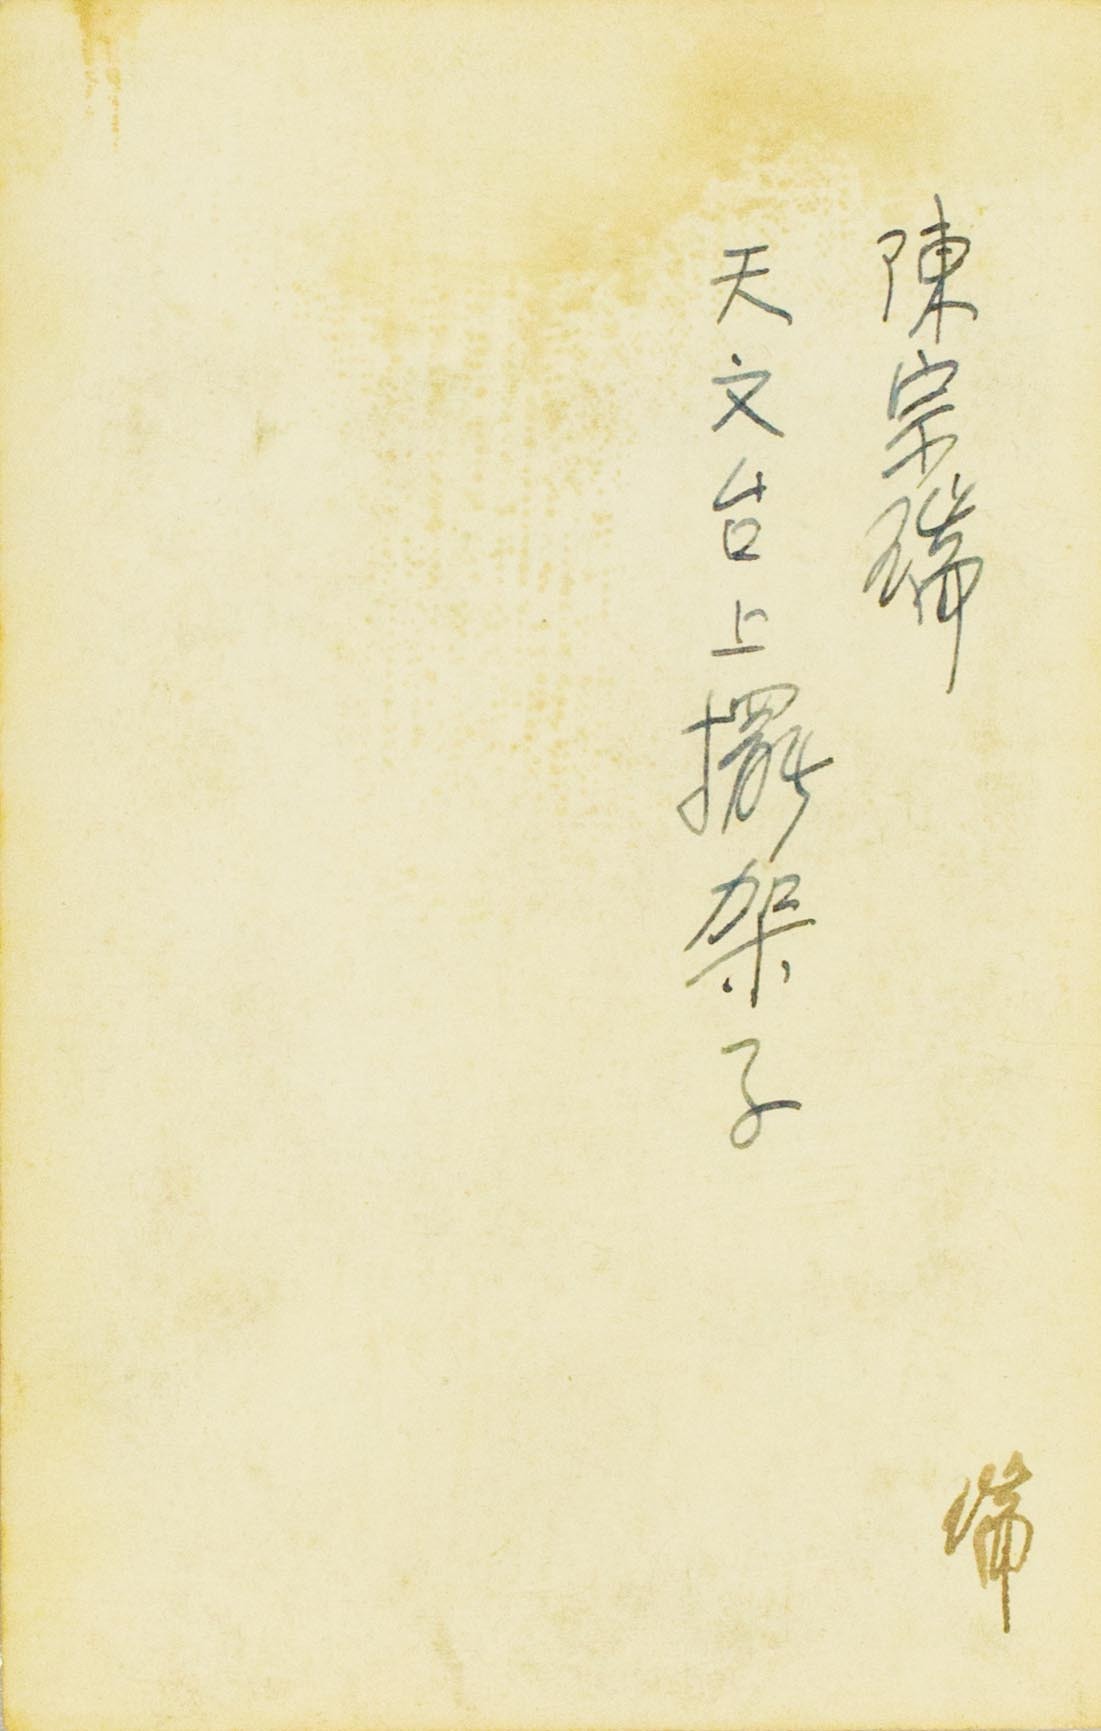 陳宗瑞
天文台上擺架子
瑞